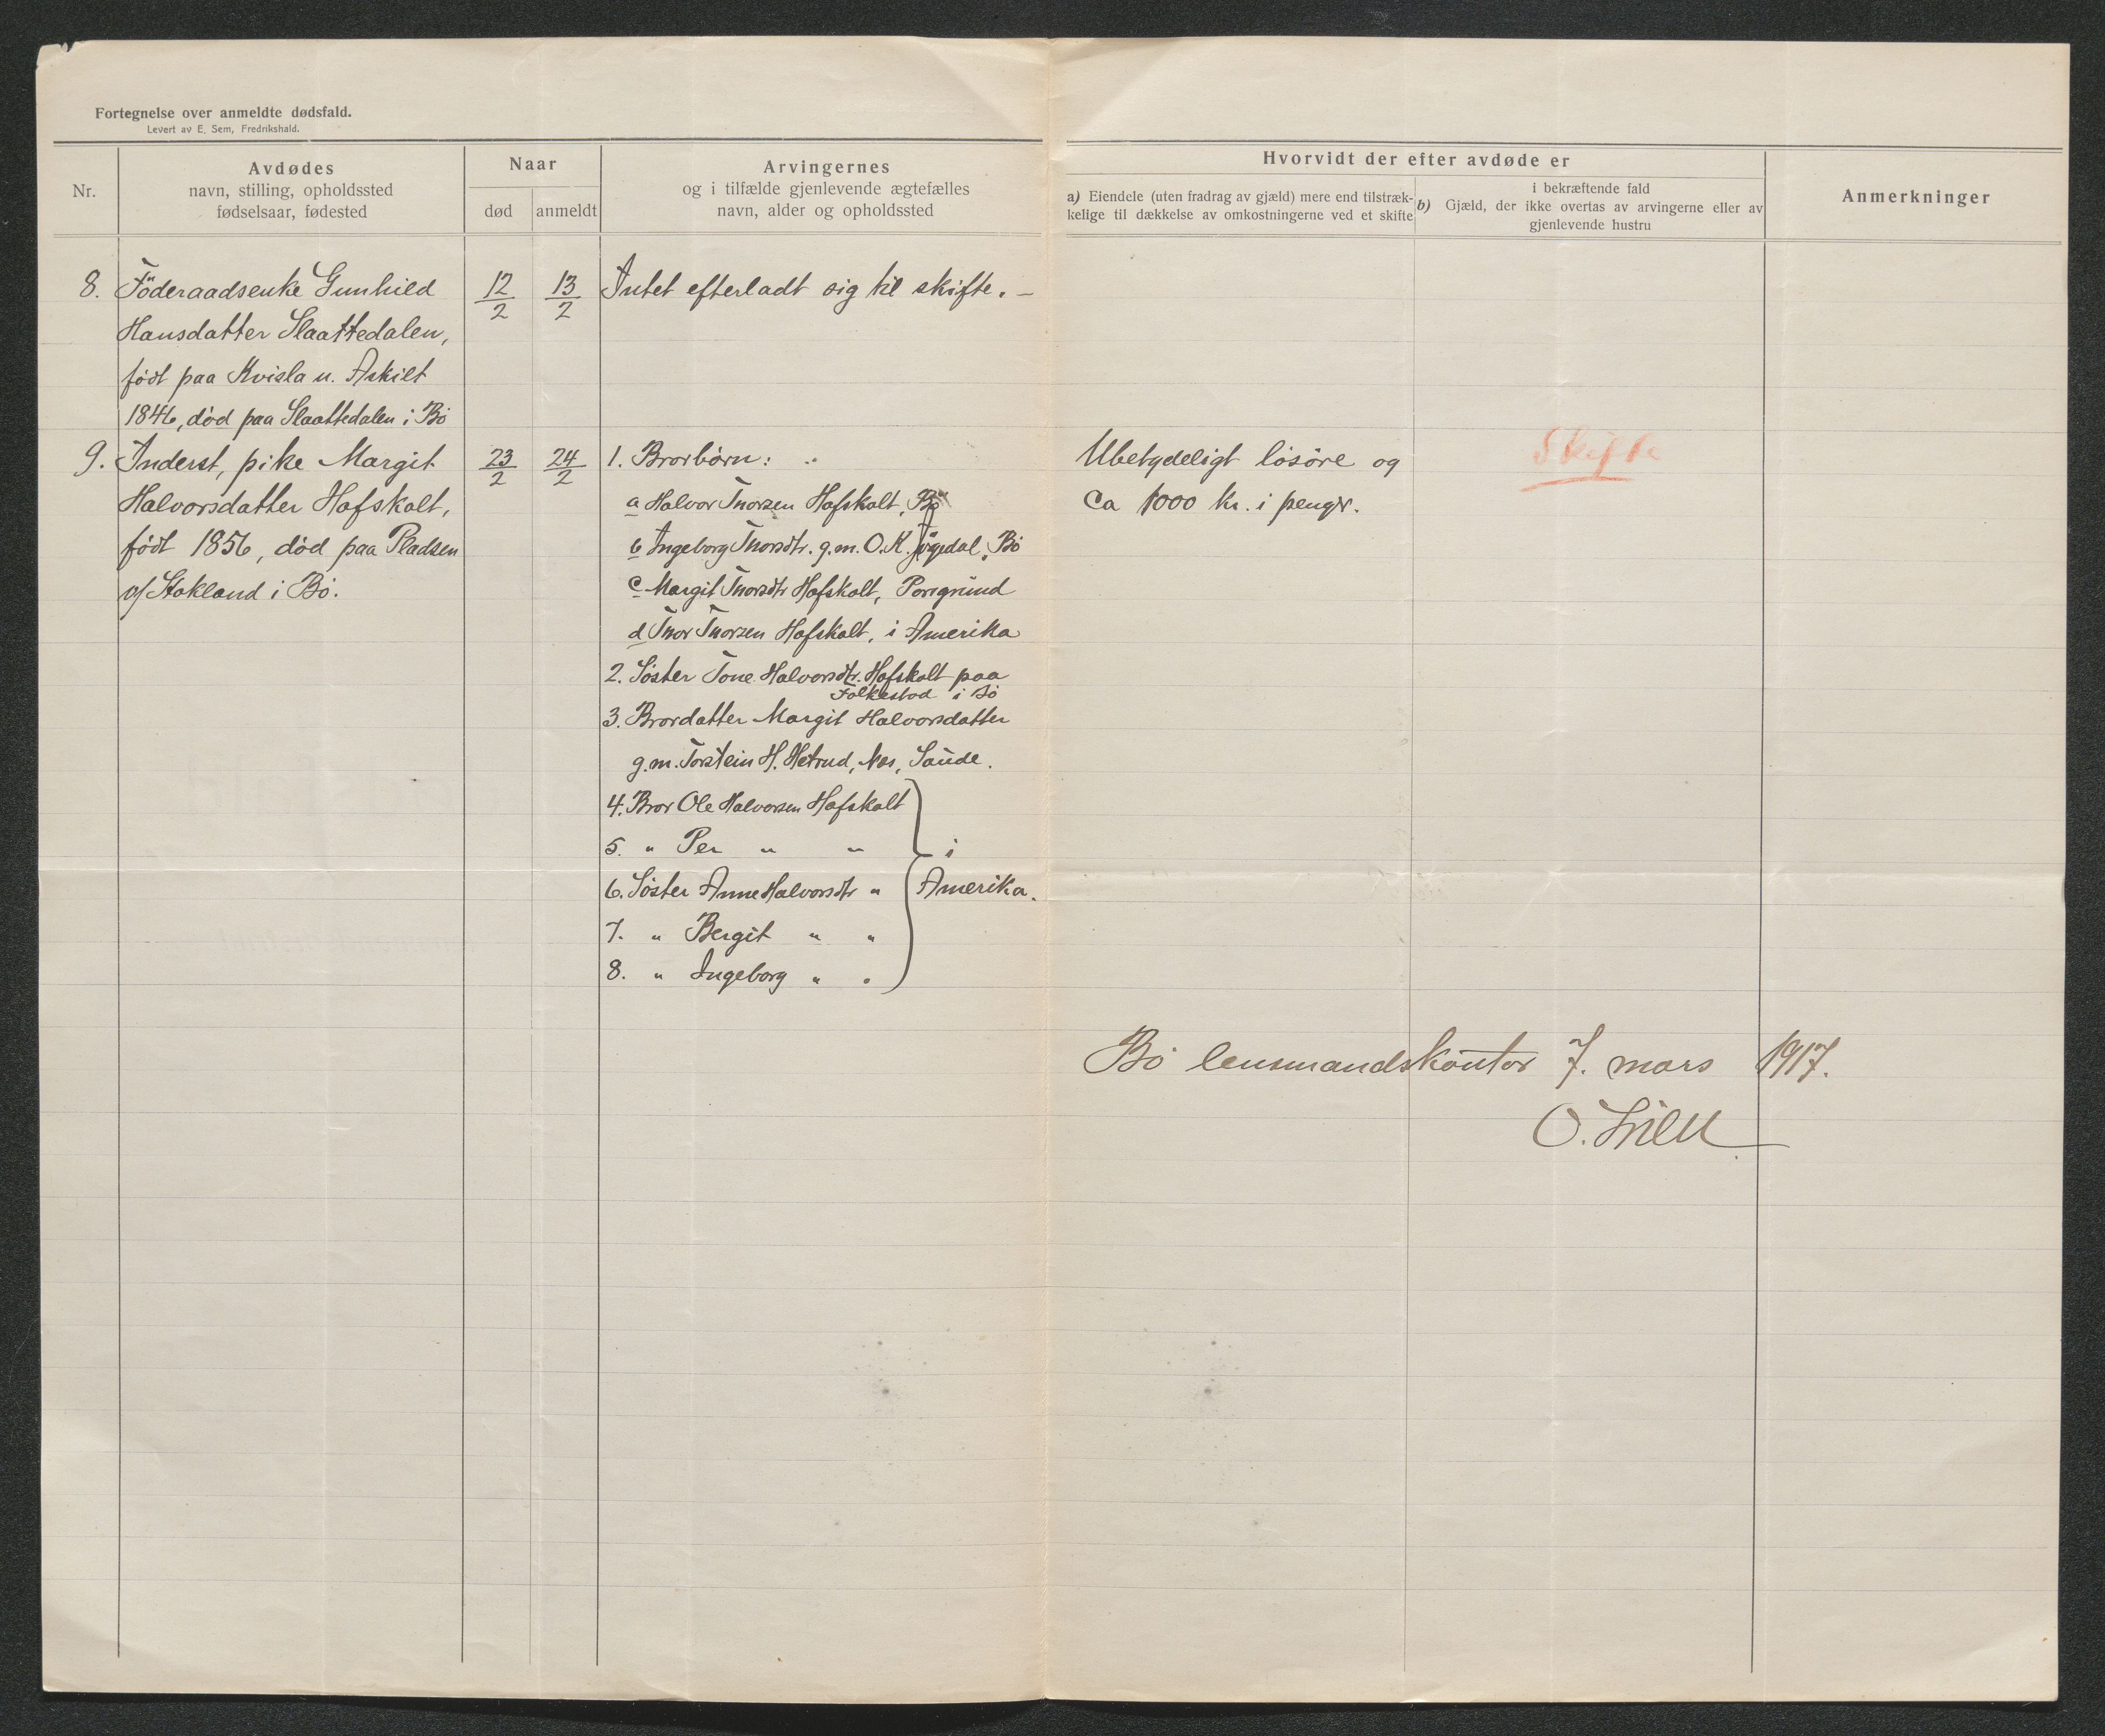 Fortegnelse over anmeldte dødsfald.
Levert av E. Sem, Fredrikshald.
Nr.
Avdødes
navn, stilling, opholdssted
fødselsaar, fødested
Naar
død
anmeldt
Arvingernes
og i tilfælde gjenlevende ægtefælles
navn, alder og opholdssted
Hvorvidt der efter avdøde er
a) Eiendele (uten fradrag av gjæld) mere end tilstræk-
kelige til dækkelse av omkostningerne ved et skifte
i bekræftende fald
b) Gjæld, der ikke overtas av arvingerne eller av
gjenlevende hustru
Anmerkninger
8. Föderaadsenke Gunhild
Hansdatter Slaattedalen,
født paa Kvisla u. Askilt
1846, død paa Slaattedalen i Bø
12/2
13/2
Intet efterladt sig til skifte. —
9. Inderst, pike Margit
Halvorsdatter Hafskalt,
født 1856, død paa Pladsen
u/ Stokland i Bø.
23/2
24/2
1. Brorbørn:
a Halvor Thorsen Hafskalt, Bø
b Ingeborg Thorsdtr. g.m. O.K. Bø
c Margit Thorsdtr Hafskalt, Porsgrund
d Thor Thorsen Hafskalt, i Amerika
2. Søster Tone Halvorsdtr. Hafskalt paa
Folkestad i Bø
3. Brordatter Margit Halvorsdatter
g.m. Torstein H. Hetrud, Nes, Saude.
4. Bror Ole Halvorsen Hafskalt
5. " Per " " i
6. Søster Anne Halvorsdtr " Amerika.
7. " Bergit " "
8. " Ingeborg " "
Ubetydeligt løsøre og
ca 1000 kr. i penger.
Skifte
Bø lensmandskontor 7. mars 1917.
O.